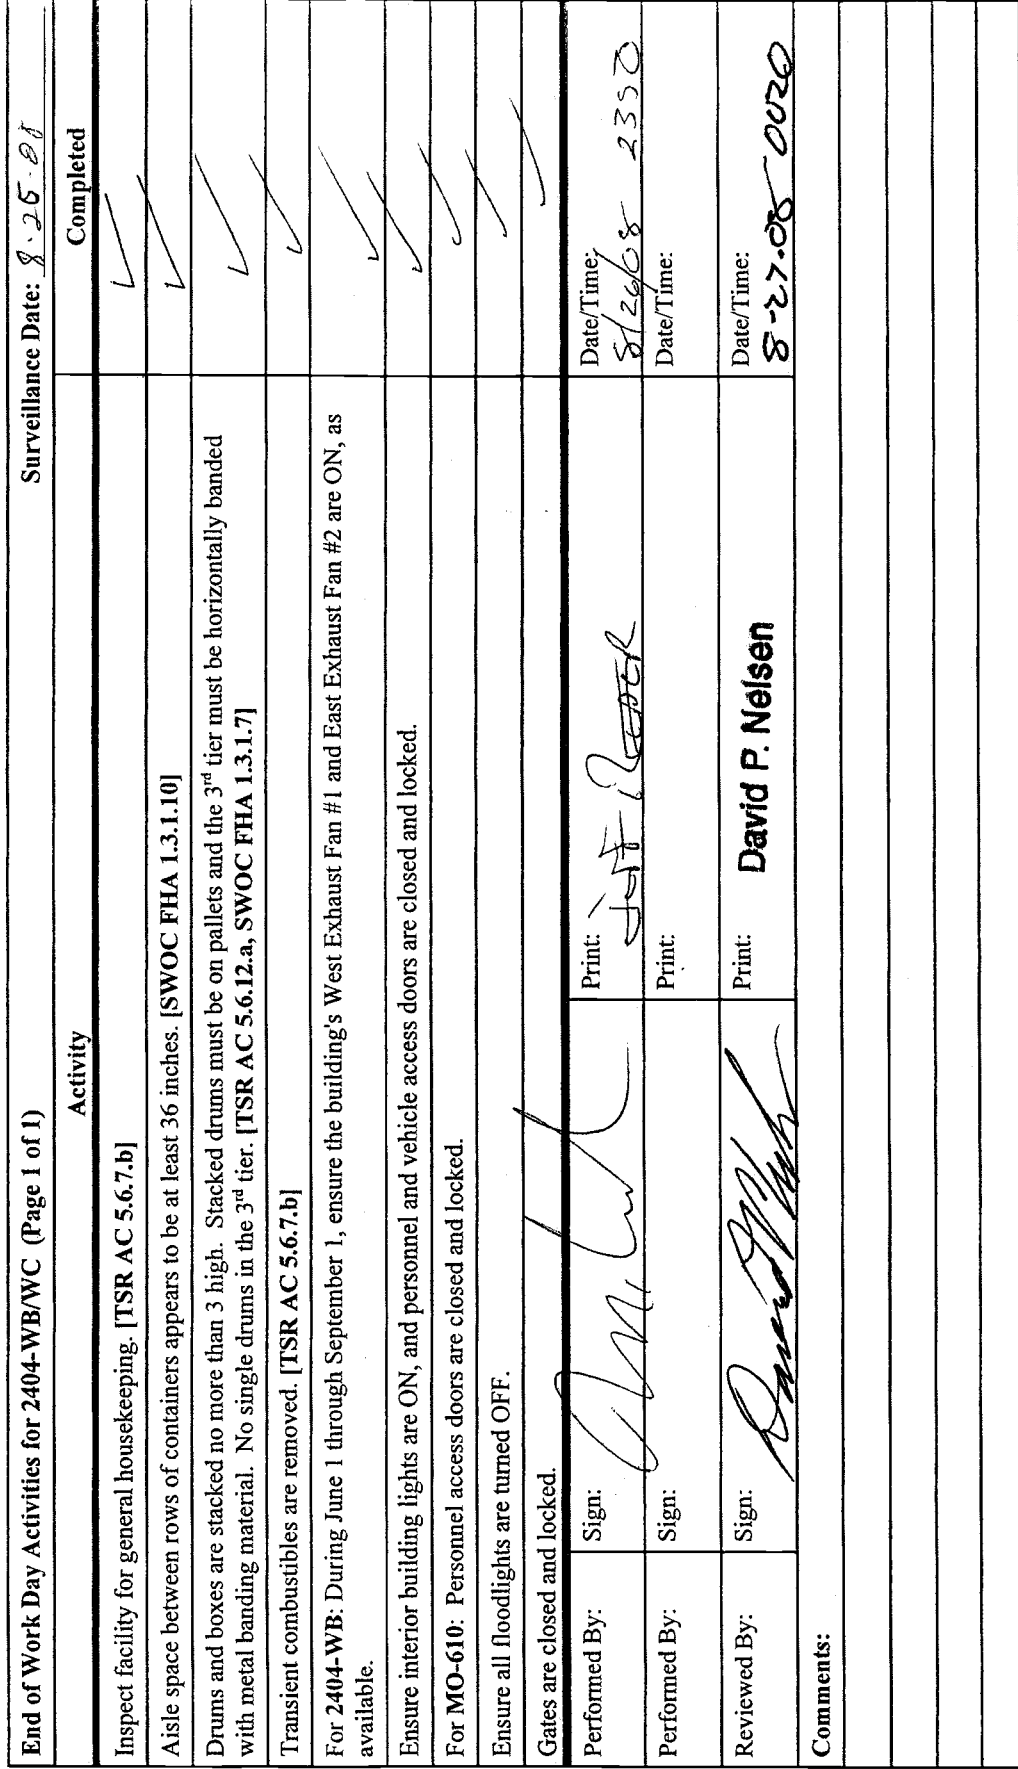 End of Work Day Activities for 2404-WB/WC (Page 1 of 1) Surveillance Date: 8-26-08
Activity Completed
Inspect facility for general housekeeping. [TSR AC 5.6.7.b] ✓
Aisle space between rows of containers appears to be at least 36 inches. [SWOC FHA 1.3.1.10] ✓
Drums and boxes are stacked no more than 3 high. Stacked drums must be on pallets and the 3rd tier must be horizontally banded
with metal banding material. No single drums in the 3rd tier. [TSR AC 5.6.12.a, SWOC FHA 1.3.1.7] ✓
Transient combustibles are removed. [TSR AC 5.6.7.b] ✓
For 2404-WB: During June 1 through September 1, ensure the building's West Exhaust Fan #1 and East Exhaust Fan #2 are ON, as
available. ✓
Ensure interior building lights are ON, and personnel and vehicle access doors are closed and locked. ✓
For MO-610: Personnel access doors are closed and locked. ✓
Ensure all floodlights are turned OFF. ✓
Gates are closed and locked. ✓
Performed By: Sign: Print: Date/Time:
8/26/08 2350
Performed By: Sign: Print: Date/Time:
Reviewed By: Sign: Print: David P. Nelsen Date/Time:
8-27-08 0020
Comments: